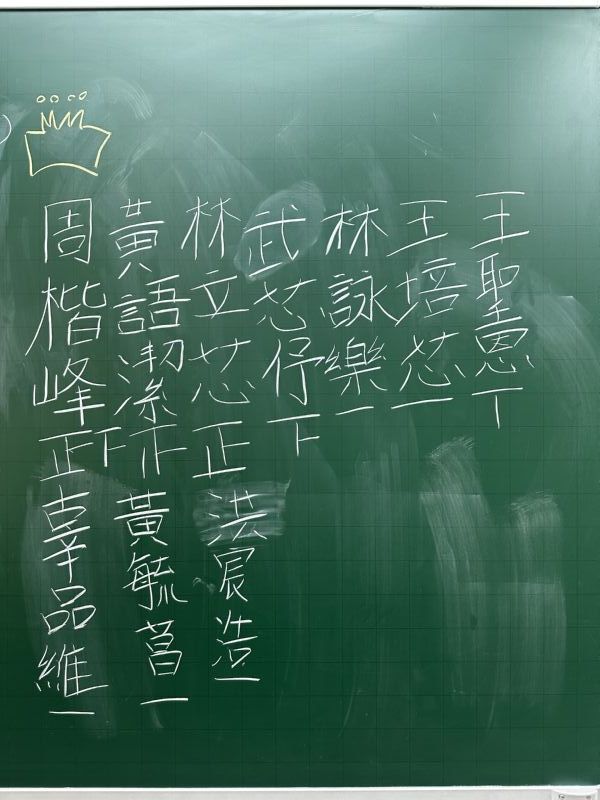 王聖恩丅
王培芯一
林詠樂一
武芯伃下
林立芯正
洪宸浩一
黃語潔
黃毓菖一
周楷峰正下
辜品維一